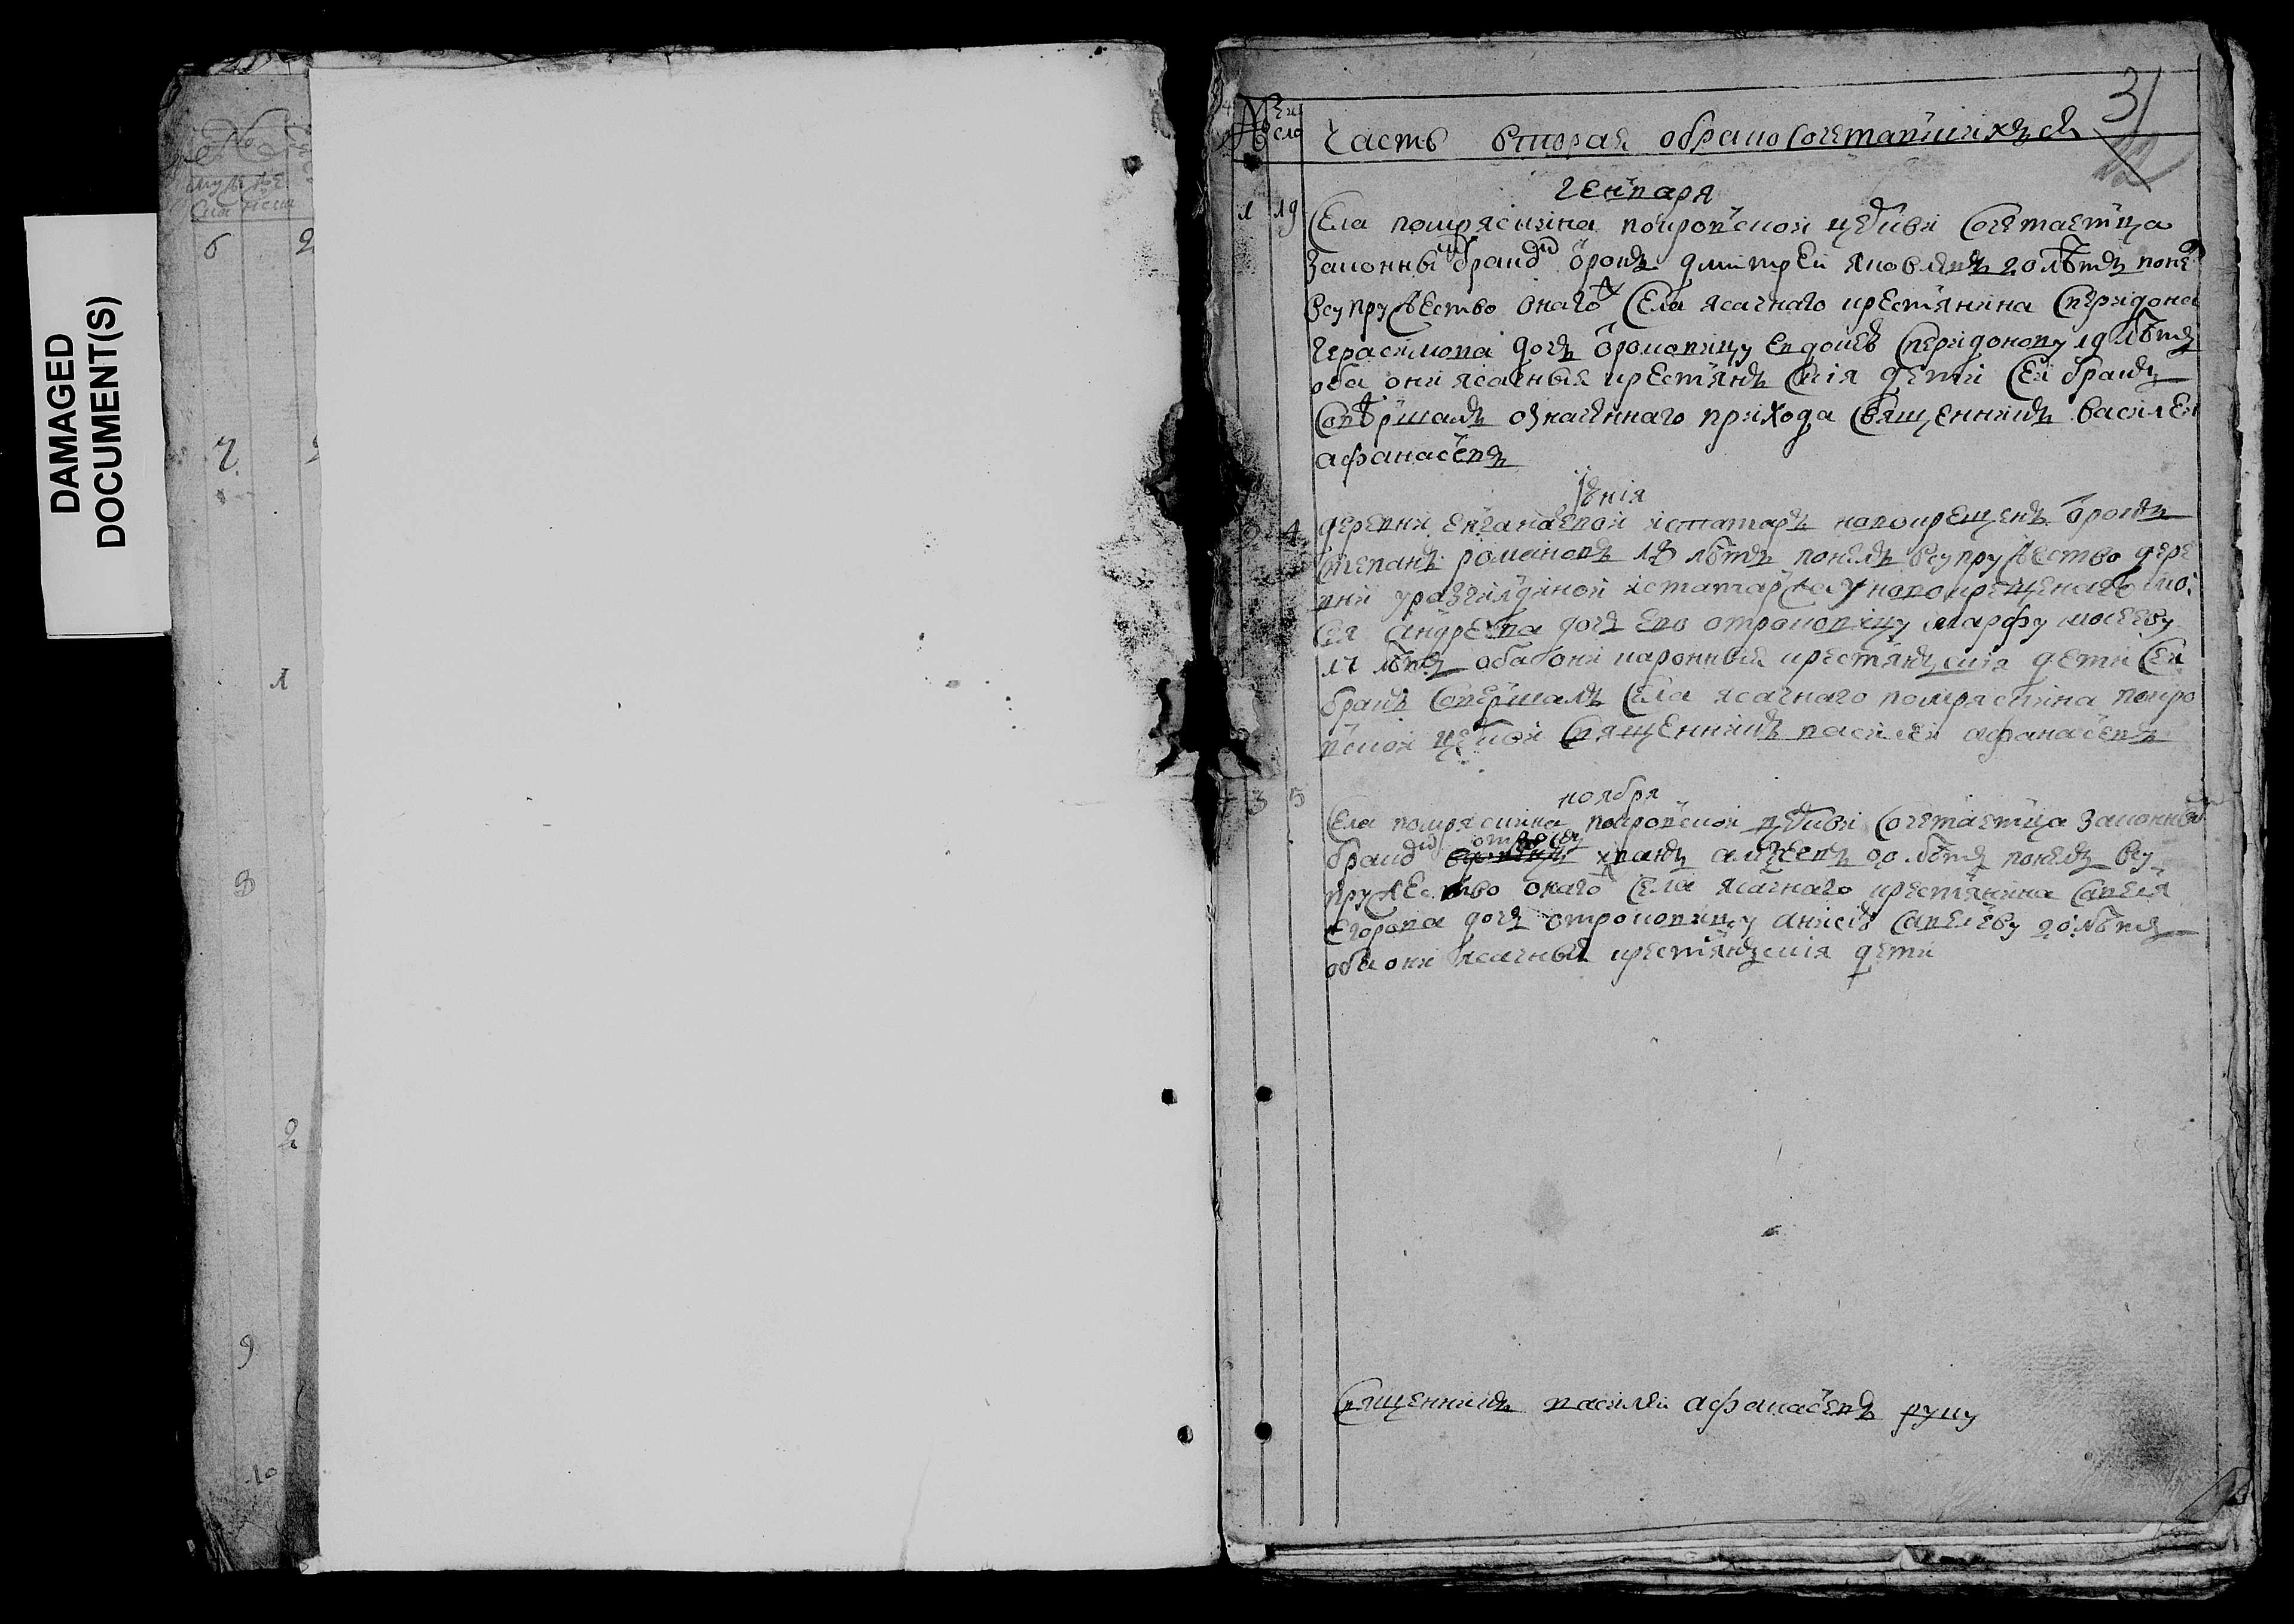 DAMAGED
DOCUMENT(S)
6 2
7
1
8
2
9
10
31
№ Чи
сло Часть вторая обрако сочетавшихъся
генваря
1 19 Села помряскина покровской цркви сочетаетца
законны бракомъ отрокъ дмитрей яковлевъ 20 летъ понелъ
всупружество онаго села ясачнаго крестьянина спиридона
герасимова дочь отроковицу евдокею спиридонову 19 летъ
оба они ясачныя крестьянския дети сей бракъ
совершалъ означеннаго прихода священникъ василей
афанасьевъ
июния
4 деревни енганаевой истатаръ новокрещенъ отрокъ
степанъ романовъ 18 летъ понелъ всупружество дере
вни уразгилдиной истатаръ новокрещенаго мо
сея андреева дочь ево отроковицу марфу мосееву
17 летъ оба они крестьянския дети сей
бракъ совершалъ села ясачнаго помряскина покро
вской цркви священникъ василей афанасьевъ
ноября
3 5 Села помряскина покровской цркви сочетаетца законны
бракомъ отрокъ иванъ 20 летъ понелъ всу
пружество онаго села ясачнаго крестьянина савеля
егорова дочь отроковицу анисю савелеву 20 летъ
оба они ясачныя крестьянския дети
священникъ василей афанасьевъ руку